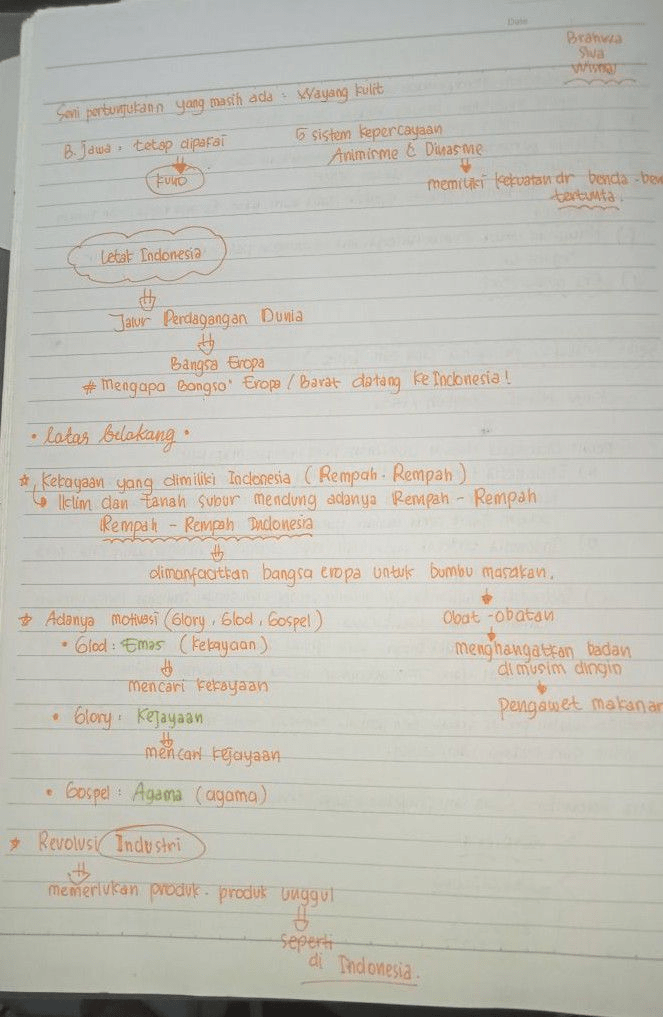 Date
Brahma
Siwa
Wisnu
Seni pertunjukann yang masih ada : Wayang kulit
B. Jawa : tetap dipakai
kuno
sistem kepercayaan
Animisme & Dinasme
memiliki kekuatan dr benda-ben
tertunta.
Letak Indonesia
Jalur Perdagangan Dunia
Bangsa Eropa
# Mengapa Bangsa" Eropa / Barat datang ke Indonesia!
• latar belakang •
☆ Kekayaan yang dimiliki Indonesia (Rempah-Rempah)
Iklim dan tanah subur mendung adanya Rempah - Rempah
Rempah - Rempah Indonesia
dimanfaatkan bangsa eropa untuk bumbu masakan.
obat -obatan
menghangatkan badan
di musim dingin
pengawet makanan
☆ Adanya motivasi (Glory, Glod, Gospel)
• Glod : Emas (kekayaan)
mencari kekayaan
• Glory : Kejayaan
mencari kejayaan
• Gospel : Agama (agama)
☆ Revolusi Industri
memerlukan produk-produk unggul
seperti
di Indonesia.